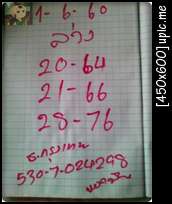 1-6-60
ล่าง
20-64
21-66
28-76
ธ.กรุงเทพ
530-7-024298
[450x600] upic.me